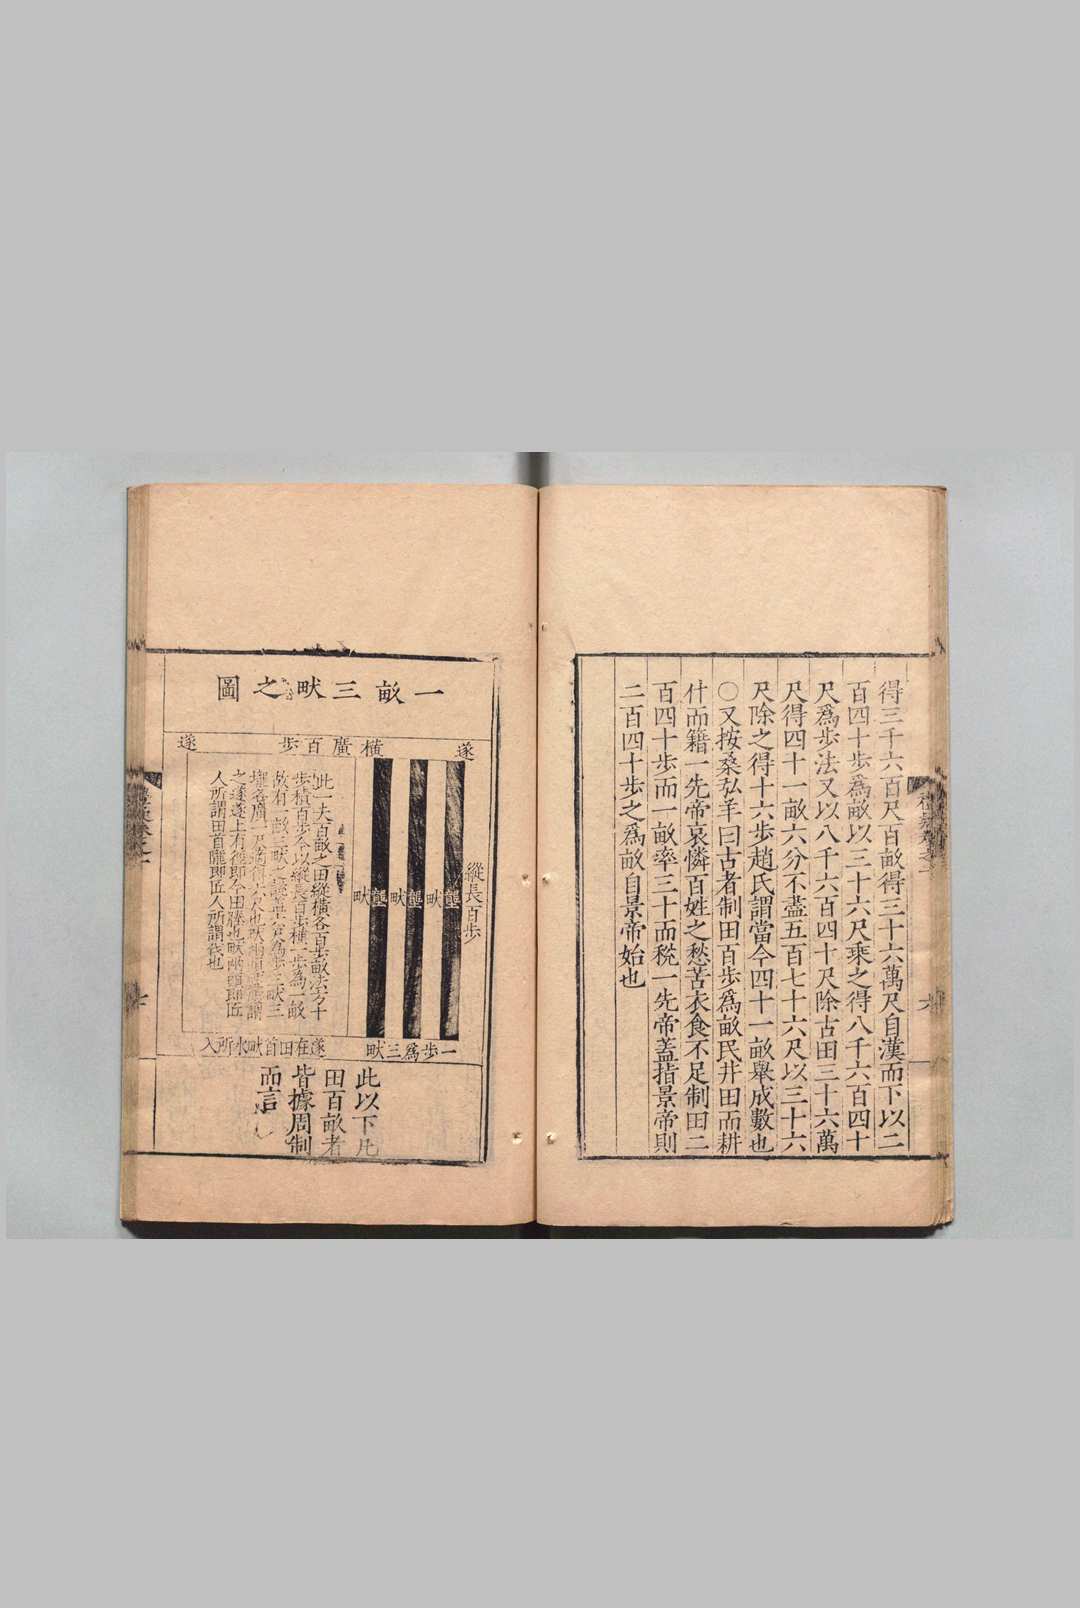 得三千六百尺百畝得三十六萬尺自漢而下以二
百四十步爲畝以三十六尺乘之得八千六百四十
尺爲步法又以八千六百四十尺除古田三十六萬
尺得四十一畝六分不盡五百七十六尺以三十六
尺除之得十六步趙氏謂當今四十一畝舉成數也
○又按桑弘羊曰古者制田百步爲畝民井田而耕
什而籍一先帝哀憐百姓之愁苦衣食不足制田二
百四十步而一畝率三十而稅一先帝蓋指景帝則
二百四十步之爲畝自景帝始也
六
一畝三畎之圖
遂
橫廣百步
遂
縱長百步
壟
畎
壟
畎
壟
畎
一步爲三畎
此一夫百畝之田縱橫各百步畝法方十
步積百步今以縱長百步橫一步為一畝
故有一畝三畎之
壠各廣一尺
之遂遂上有徑即今田塍也畎兩頭即匠
人所謂田首隴即匠人所謂伐也
遂在田首畎水所入
此以下凡
田百畝者
皆據周制
而言
七